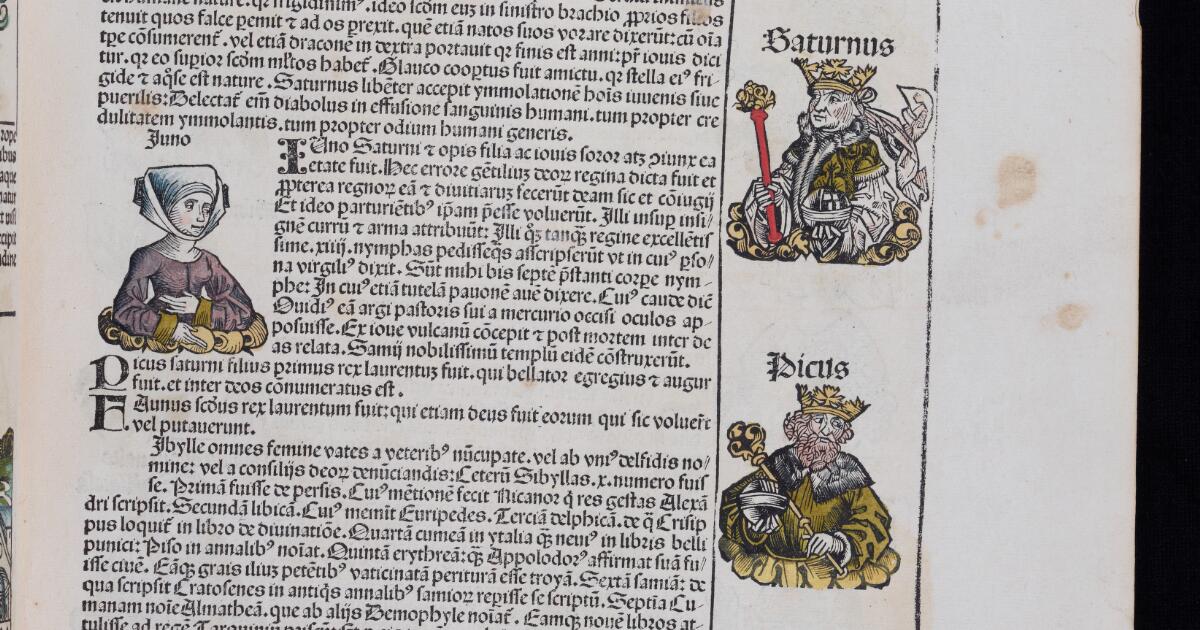 tenuit quos falce pemit ⁊ ad os p̱rexit. que etiā natos suos vorare dixerūt: cū oīa
tp̄e cōsumerent᷒. vel etiā draconē in dextra portauit qꝛ finis est anni: pr̄ iouis dici
tur. qꝛ eo supior scd̄m mltos habet᷒. Glauco coopertus fuit amictu. qꝛ stella eiꝰ fri-
gide ⁊ aq̄se est nature. Saturnus libēter accepit ymmolationē hoīs iuuenis siue
puerilis: Delectat᷒ em̄ diabolus in effusione sanguinis humani. tum propter cre
dulitatem ymmolantis. tum propter odium humani generis.
Juno
IUno Saturni ⁊ opis filia ac iouis soror atqꝫ ꝯiunx ea
etate fuit. Hec errore gētiliuꝫ deoꝝ regina dicta fuit et
ꝓpterea regnoꝝ eā ⁊ diuitiaruꝫ fecerūt deam sic et cōiugij
Et ideo parturiētibꝰ ip̄am p̄esse voluerūt. Illi insuꝑ insi-
gnē currū ⁊ arma attribuūt: Illi q̄ꝫ tanqꝫ regine excellētis
sime. xiiij. nymphas pedisseq̄s asscripserūt vt in cuiꝰ ꝑso-
na virgiliꝰ dixit. Sūt mihi bis septē p̄stanti corꝑe nym-
phe: In cuiꝰ etiā tutelā pauonē auē dixere. Cuiꝰ caude diē
Ouidiꝰ eā argi pastoris sui a mercurio occisi oculos ap-
posuisse. Ex ioue vulcanū cōcepit ⁊ post mortem inter de
as relata. Samij nobilissimū templū eidē cōstruxerūt.
Picus saturni filius primus rex laurentuꝫ fuit. qui bellator egregius ⁊ augur
fuit. et inter deos cōnumeratus est.
FAunus scd̄us rex laurentum fuit: qui etiam deus fuit eorum qui sic voluer̄t
vel putauerunt.
Jbylle omnes femine vates a veteribꝰ nūcupate. vel ab vniꝰ delfidis no-
mine: vel a consilijs deoꝝ denūciandis: Ceterū Sibyllas. x. numero fuis
se. Primā fuisse de persis. Cuiꝰ mētionē fecit Nicanor q̄ res gestas Alexā
dri scripsit. Secundā libicā. Cuiꝰ memīt Euripedes. Terciā delphicā. de q̄ Crisip
pus loquit᷒ in libro de diuinatiōe. Quartā cumeā in ytalia q̄ꝫ neuiꝰ in libris belli
punici: Piso in annalibꝰ noīat. Quintā erythreā: q̄ꝫ Appolodorꝰ affirmat suā fu-
isse ciuē. Eāqꝫ grais iliuꝫ petētibꝰ vaticinatā perituꝝ esse troyā. Sextā samiā: de
qua scripsit Eratosenes in antiq̄s annalibꝰ samioꝝ reꝑisse se scriptū. Septīa Cu-
manam noīe Almatheā. que ab alijs Demophyle noīat᷒. Eamqꝫ nouē libros at-
Saturnus
Picus